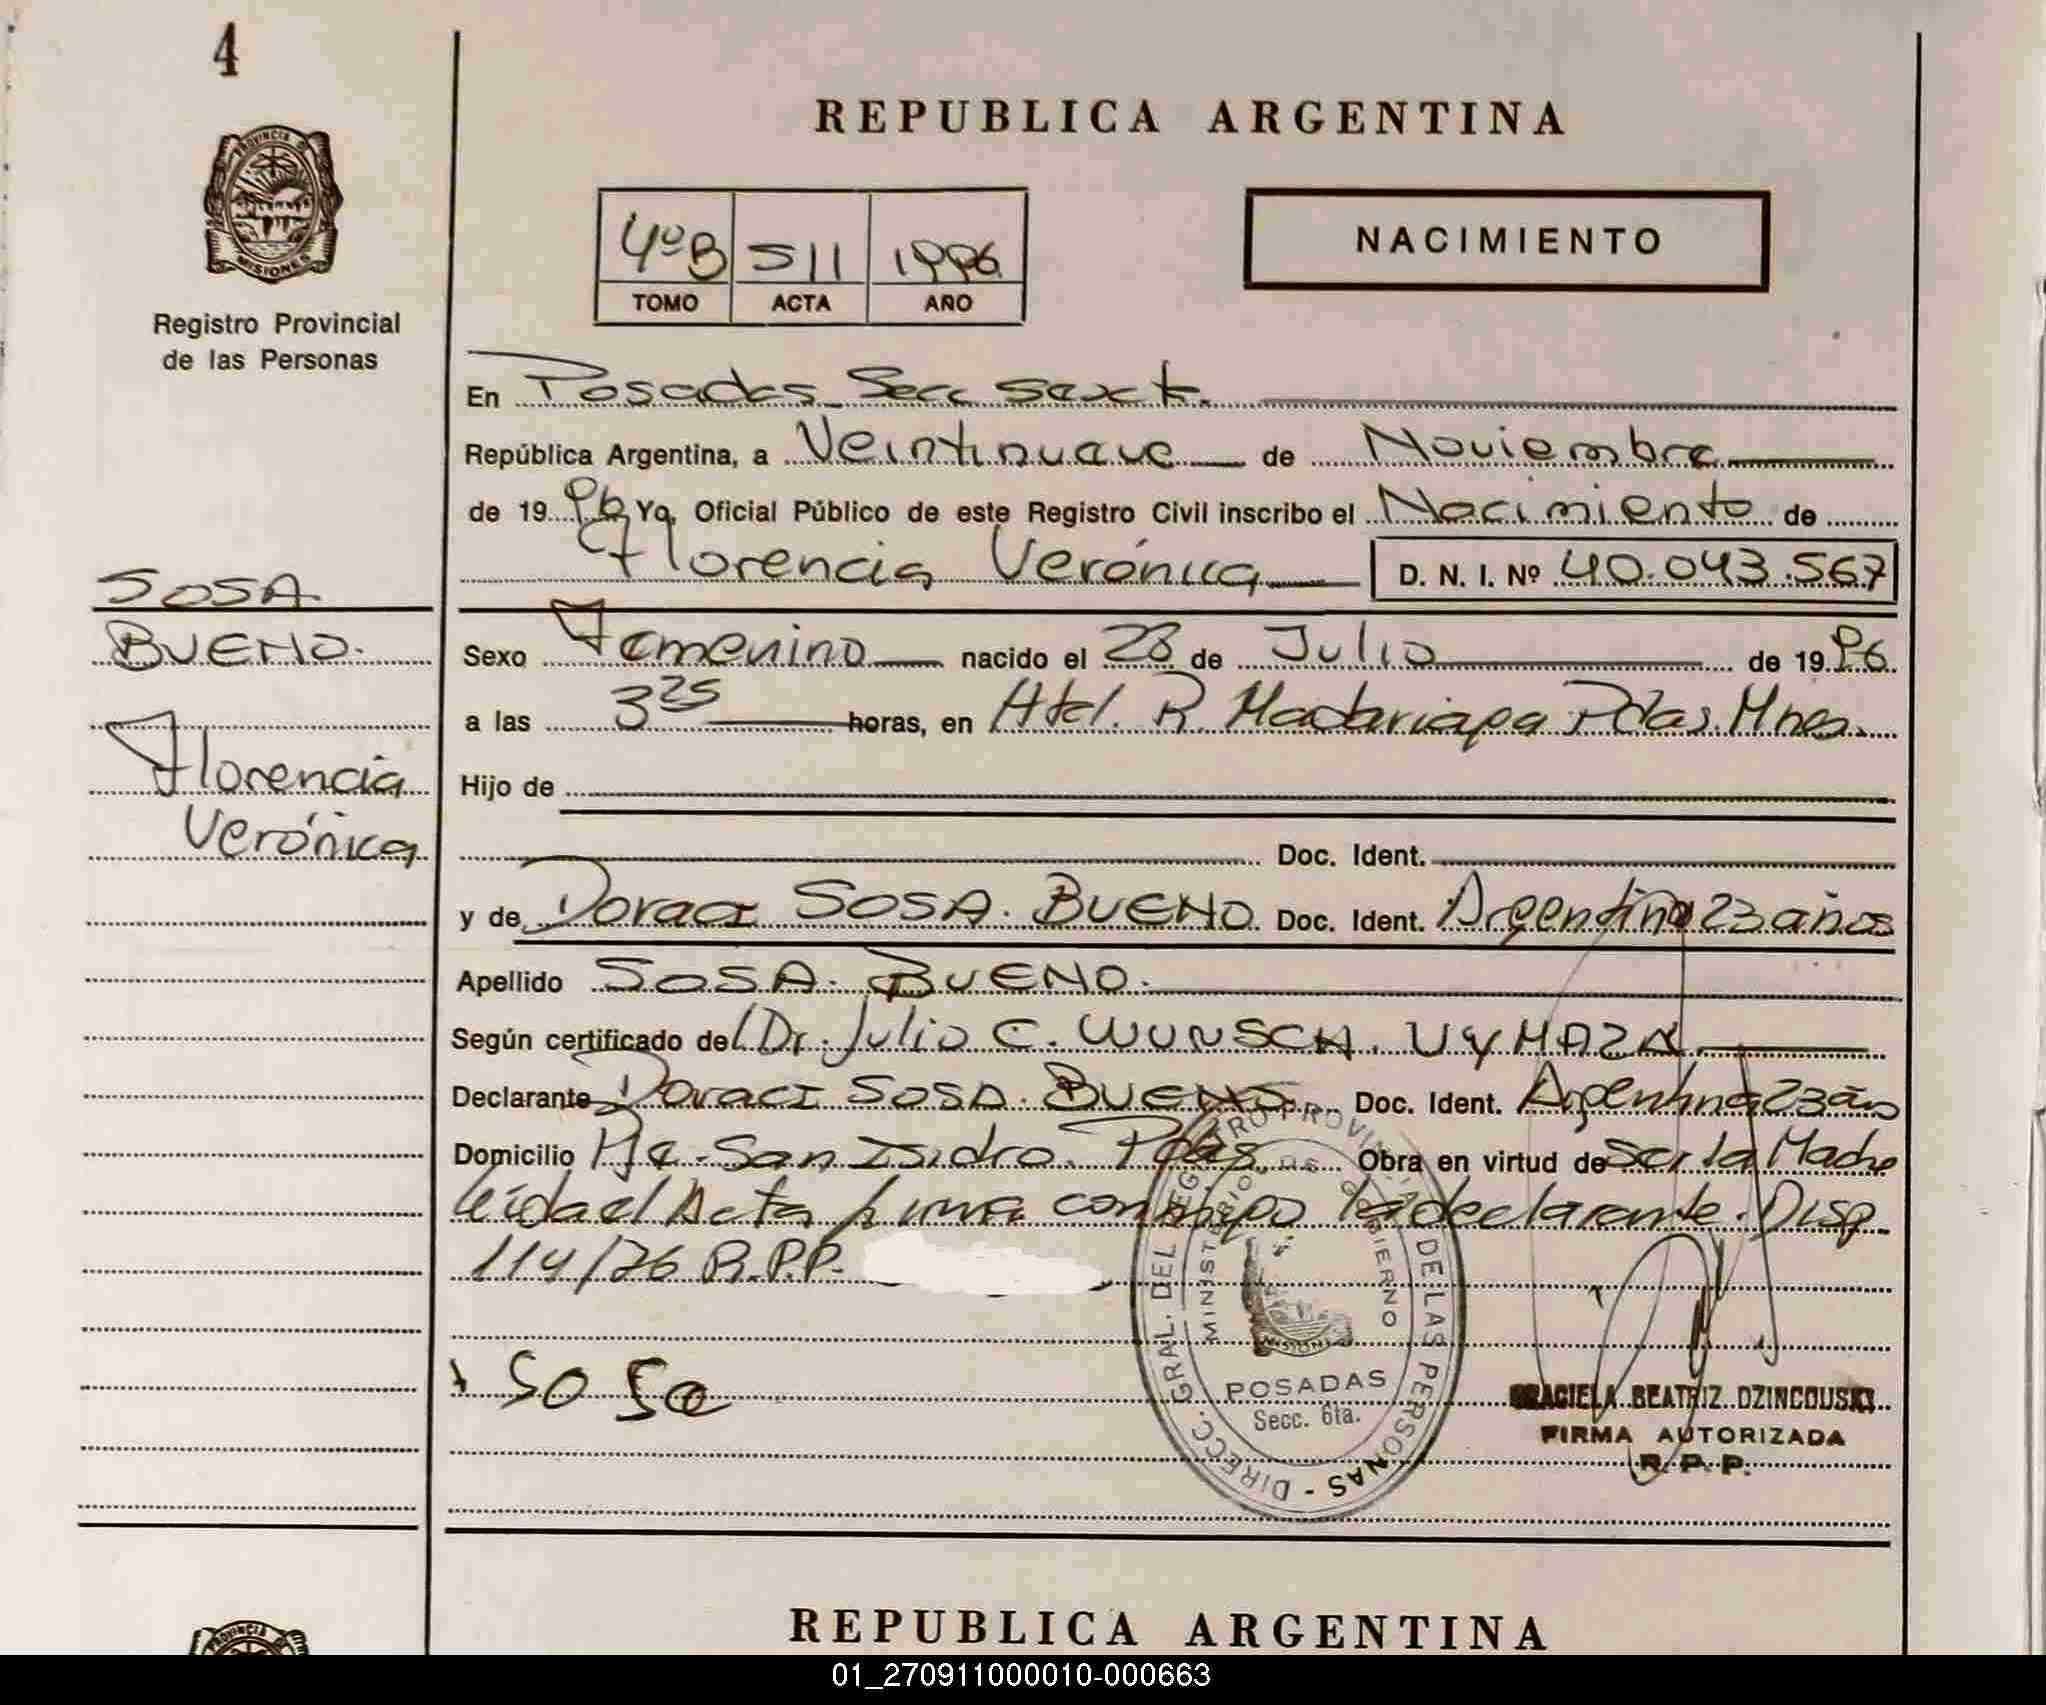 4
PROVINCIA DE
MISIONES
Registro Provincial
de las Personas
REPUBLICA ARGENTINA
4ºB 511 1996
TOMO ACTA AÑO
NACIMIENTO
En Posadas Secc sexta.
República Argentina, a Veintinueve de Noviembre
de 1996 Yo, Oficial Público de este Registro Civil inscribo el Nacimiento de
Florencia Verónica D. N. I. Nº 40.043.567
SOSA
BUENO.
Florencia
Verónica
Sexo Femenino nacido el 28 de Julio de 1996
a las 3 25 horas, en Htal. R. Madariaga Pdas. Mnes.
Hijo de
Doc. Ident.
y de Doraci SOSA. BUENO Doc. Ident. Argentina 23 años
Apellido SOSA. BUENO.
Según certificado del Dr. Julio C. WUNSCH.
Declarante Doraci SOSA. BUENO. Doc. Ident. Argentina 23 años
Domicilio San Isidro. Pdas Obra en virtud de Ser la Madre
leída el Acta firma conmigo la declarante. Disp.
114/76 R.P.P.
SOSa
DIRECC. GRAL. DEL REGISTRO PROVINCIAL DE LAS PERSONAS -
MINISTERIO DE GOBIERNO
MISIONES
POSADAS
Secc. 6ta.
GRACIELA BEATRIZ DZINCOUSKI
FIRMA AUTORIZADA
R. P. P.
PROVINCIA DE
REPUBLICA ARGENTINA
01_270911000010-000663